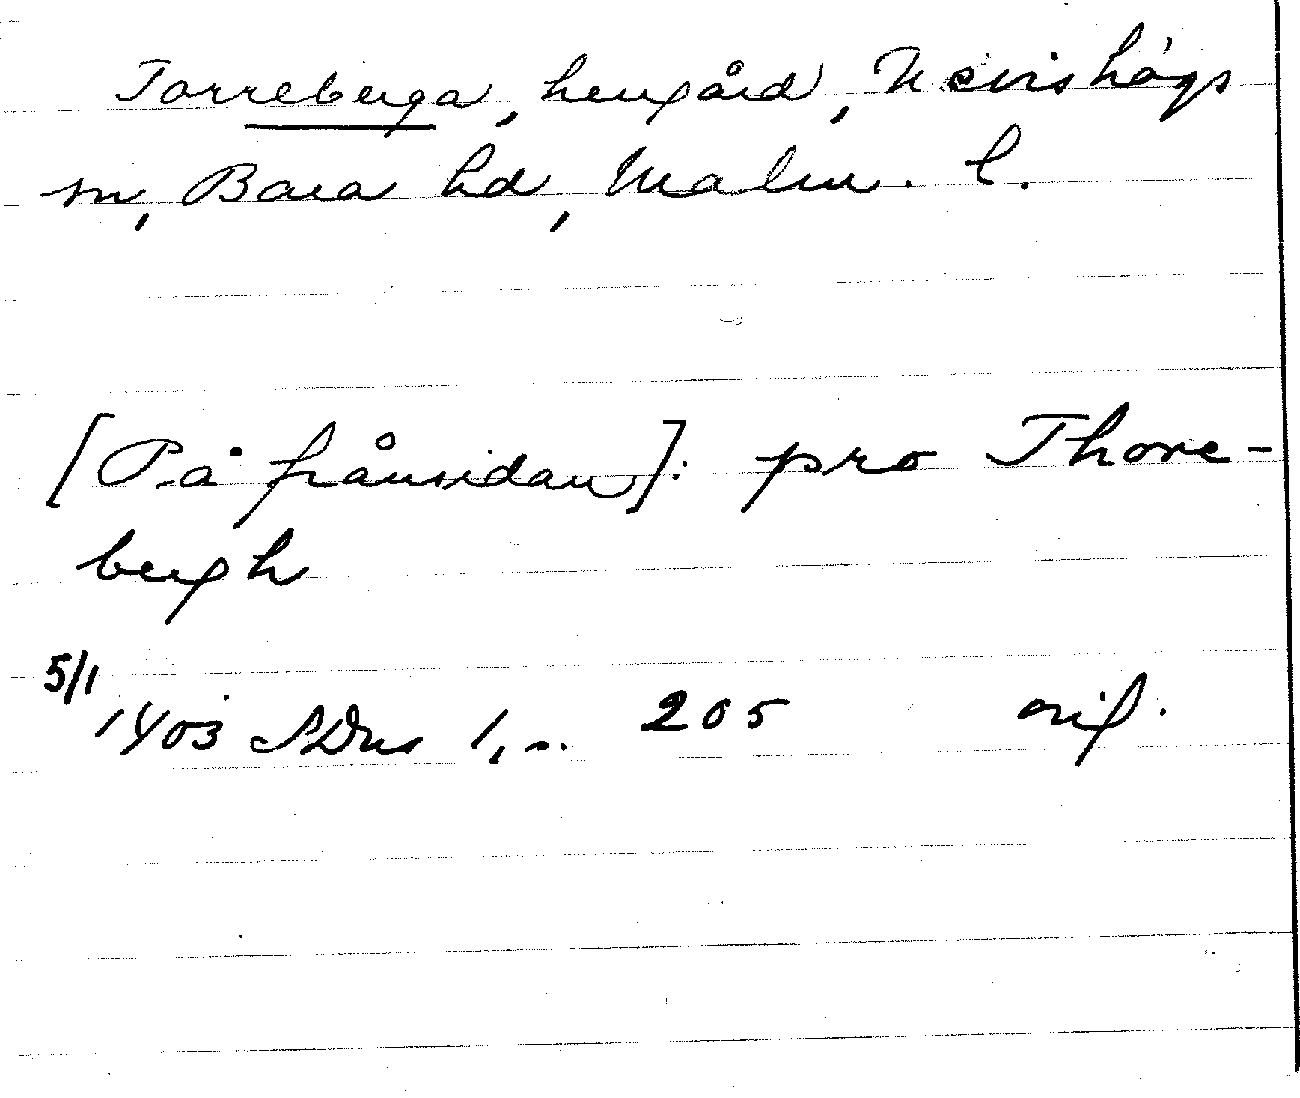 Torreberga, herrgård, Nevishögs
sn, Bara hd, Malm. l.
[På frånsidan]: pro Thore-
bergh
5/1
1403 SDns 1, 205 orig.